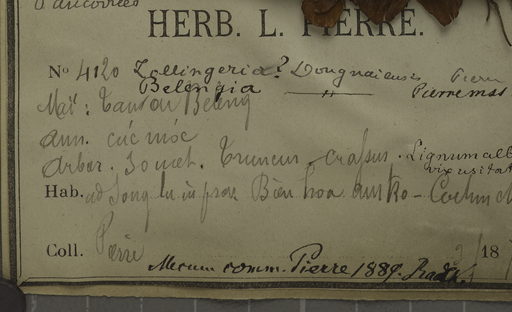 HERB. L. PIERRE.
No 4120 Zollingeria? Dongnaiensis Pierre
Belengia — " — Pierre mss
Annn. cúc móc
Arbor. 30 met. Truncus crassus. Lignum alb
vix usitat
Hab. ad song lu in prov Bien hoa austro-Cochin
Coll. Pierre 18
Mecum comm. Pierre 1889. Radlk.